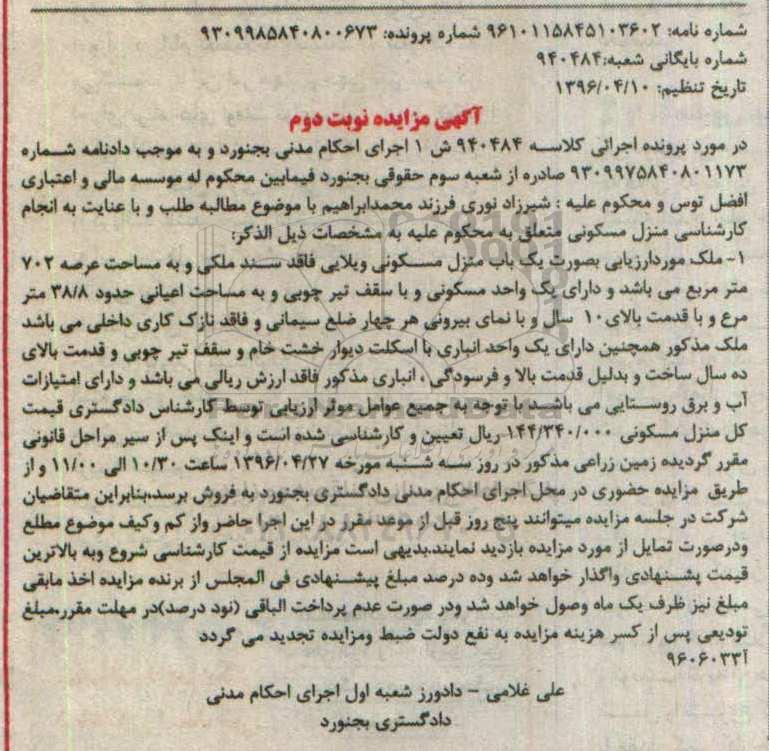 شماره نامه: ۹۶۱۰۱۱۵۸۴۵۱۰۳۶۰۲ شماره پرونده: ۹۳۰۹۹۸۵۸۴۰۸۰۰۶۷۳
شماره بایگانی شعبه:۹۴۰۴۸۴
تاریخ تنظیم: ۱۳۹۶/۰۴/۱۰
آگهی مزایده نوبت دوم
در مورد پرونده اجرائی کلاسه ۹۴۰۴۸۴ ش ۱ اجرای احکام مدنی بجنورد و به موجب دادنامه شماره
۹۳۰۹۹۷۵۸۴۰۸۰۱۱۷۳ صادره از شعبه سوم حقوقی بجنورد فیمابین محکوم له موسسه مالی و اعتباری
افضل توس و محکوم علیه : شیرزاد نوری فرزند محمدابراهیم با موضوع مطالبه طلب و با عنایت به انجام
کارشناسی منزل مسکونی متعلق به محکوم علیه به مشخصات ذیل الذکر:
۱- ملک موردارزیابی بصورت یک باب منزل مسکونی ویلایی فاقد سند ملکی و به مساحت عرصه ۷۰۲
متر مربع می باشد و دارای یک واحد مسکونی و با سقف تیر چوبی و به مساحت اعیانی حدود ۳۸/۸ متر
مرع و با قدمت بالای۱۰ سال و با نمای بیرونی هر چهار ضلع سیمانی و فاقد نازک کاری داخلی می باشد
ملک مذکور همچنین دارای یک واحد انباری با اسکلت دیوار خشت خام و سقف تیر چوبی و قدمت بالای
ده سال ساخت و بدلیل قدمت بالا و فرسودگی ، انباری مذکور فاقد ارزش ریالی می باشد و دارای امتیازات
آب و برق روستایی می باشد با توجه به جمیع عوامل موثر ارزیابی توسط کارشناس دادگستری قیمت
کل منزل مسکونی ۱۴۴/۳۴۰/۰۰۰ ریال تعیین و کارشناسی شده است و اینک پس از سیر مراحل قانونی
مقرر گردیده زمین زراعی مذکور در روز سه شنبه مورخه ۱۳۹۶/۰۴/۲۷ ساعت ۱۰/۳۰ الی ۱۱/۰۰ و از
طریق مزایده حضوری در محل اجرای احکام مدنی دادگستری بجنورد به فروش برسد،بنابراین متقاضیان
شرکت در جلسه مزایده میتوانند پنج روز قبل از موعد مقرر در این اجرا حاضر واز کم وکیف موضوع مطلع
ودرصورت تمایل از مورد مزایده بازدید نمایند.بدیهی است مزایده از قیمت کارشناسی شروع وبه بالاترین
قیمت پشنهادی واگذار خواهد شد وده درصد مبلغ پیشنهادی فی المجلس از برنده مزایده اخذ مابقی
مبلغ نیز ظرف یک ماه وصول خواهد شد ودر صورت عدم پرداخت الباقی (نود درصد)در مهلت مقرر،مبلغ
تودیعی پس از کسر هزینه مزایده به نفع دولت ضبط ومزایده تجدید می گردد
آ۹۶۰۶۰۳۳
علی غلامی - دادورز شعبه اول اجرای احکام مدنی
دادگستری بجنورد